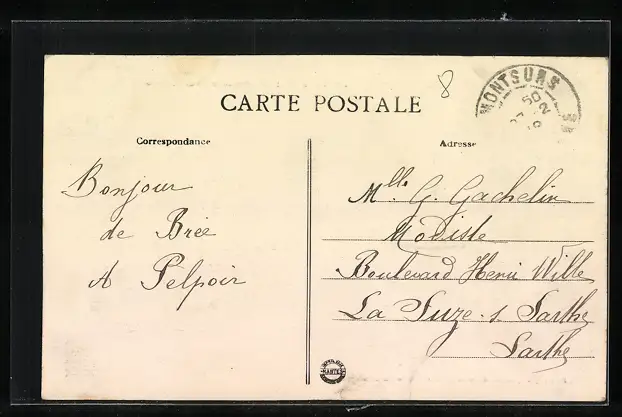 8
CARTE POSTALE
MONTSURS
Correspondance
Adresse
Bonjour
de Brée
A Pelpoir
Mlle G. Gachelin
Modiste
Boulevard Henri Wille
La Suze s. Sarthe
Sarthe